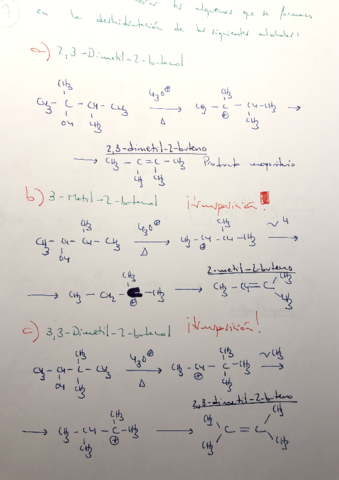 7
los alquenos que se forman
en la deshidratación de los siguientes alcoholes:
a) 2,3-Dimetil-2-butanol
CH₃
CH₃-C-CH-CH₃ H₃O⊕ CH₃-C-CH-CH₃
OH CH₃ Δ ⊕ CH₃
2,3-dimetil-2-buteno
CH₃-C=C-CH₃ Producto mayoritario
CH₃ CH₃
b) 3-Metil-2-butanol ¡transposición!
CH₃ CH₃
CH₃-CH-CH-CH₃ H₃O⊕ CH₃-CH-CH-CH₃ ~H
OH Δ ⊕
2-metil-2-buteno
CH₃
CH₃-CH₂-C-CH₃ CH₃-CH=C CH₃
⊕ CH₃
c) 3,3-Dimetil-2-butanol ¡transposición!
CH₃ CH₃
CH₃-CH-C-CH₃ H₃O⊕ CH₃-CH-C-CH₃ ~CH₃
OH CH₃ Δ ⊕ CH₃
2,3-dimetil-2-buteno
CH₃ CH₃ CH₃
CH₃-CH-C-CH₃ C=C
CH₃ ⊕ CH₃ CH₃